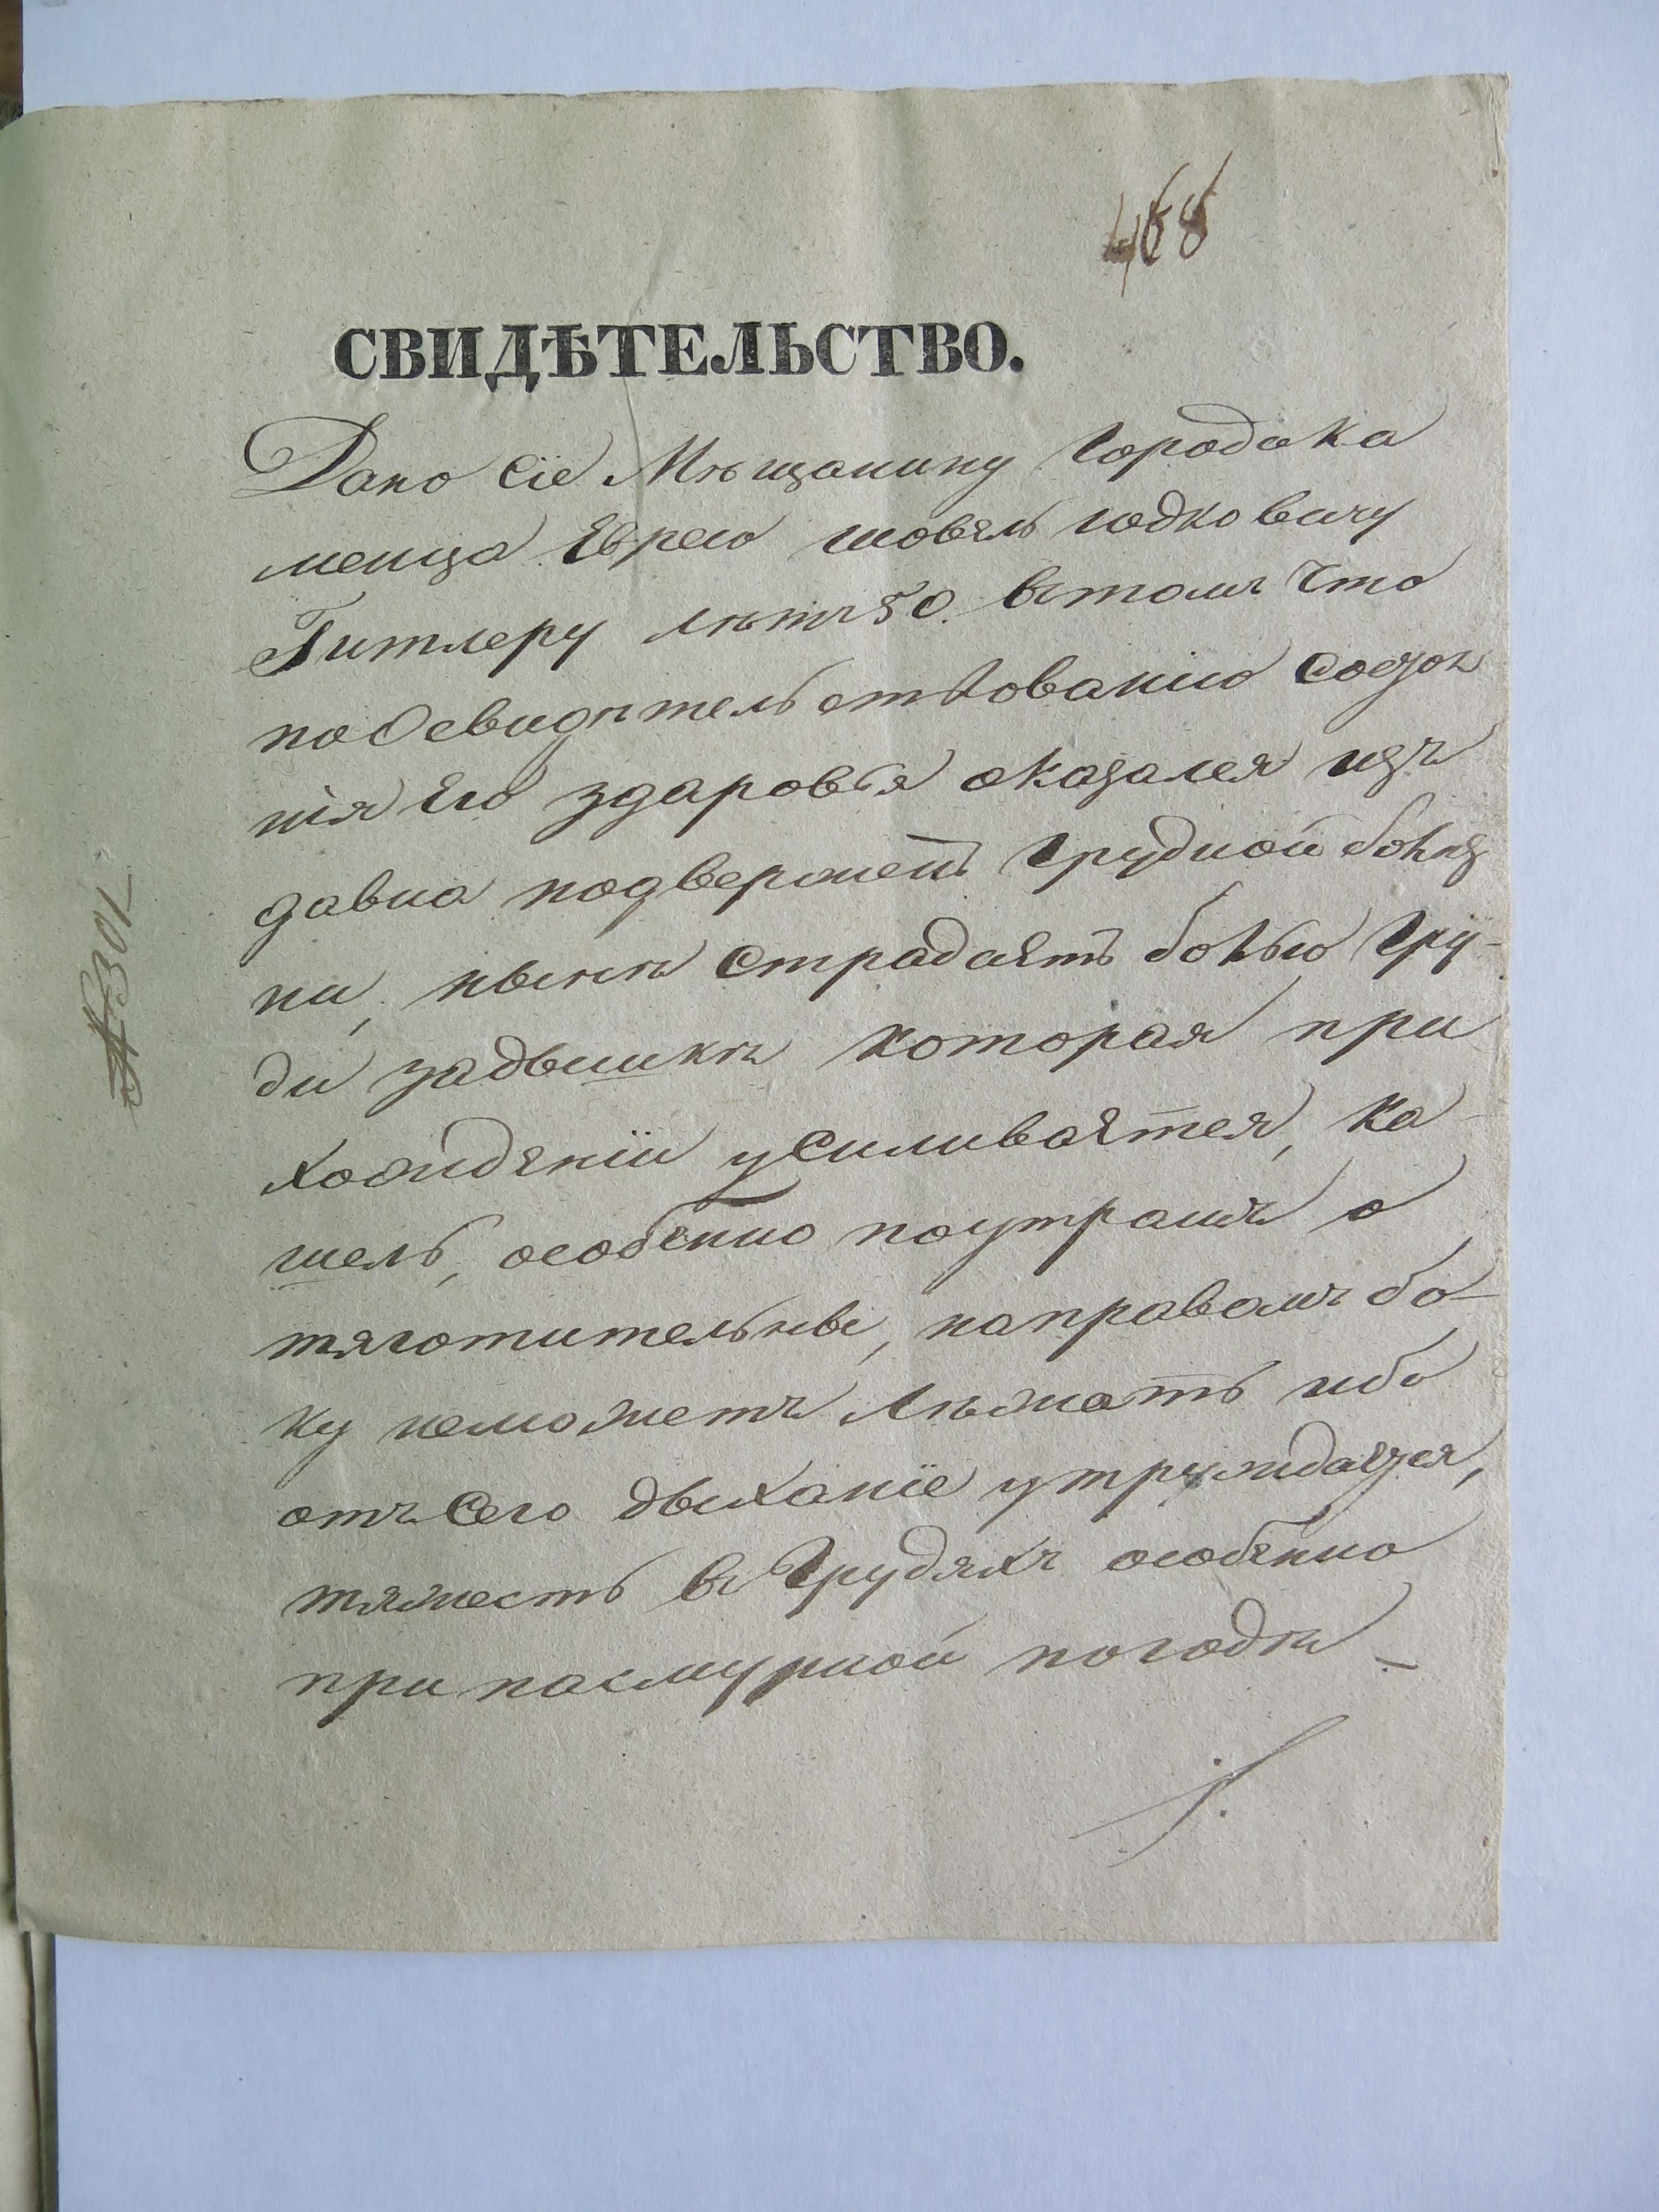 468
СВИДѢТЕЛЬСТВО.
Дано сіе Мѣщанину города Ка
менца Еврею Шовель Юдковичу
Гитлеру лѣтъ 50. Вътомъ Что
поОсвидѣтельствованию
нія Его здаровья оказался изъ
давна подверженъ Грудной
ни, нынѣ Страдаетъ болью Гру-
ди задышкѣ которая при
хожденіи усиливается, ка-
шель, особенно поутрамъ о
тяготительны, направомъ бо-
ку неможетъ лѣжать ибо
отъ Сего дыханіе утруждается,
тяжесть въ Грудяхъ особенно
при пасмурной погодѣ –
№ 301